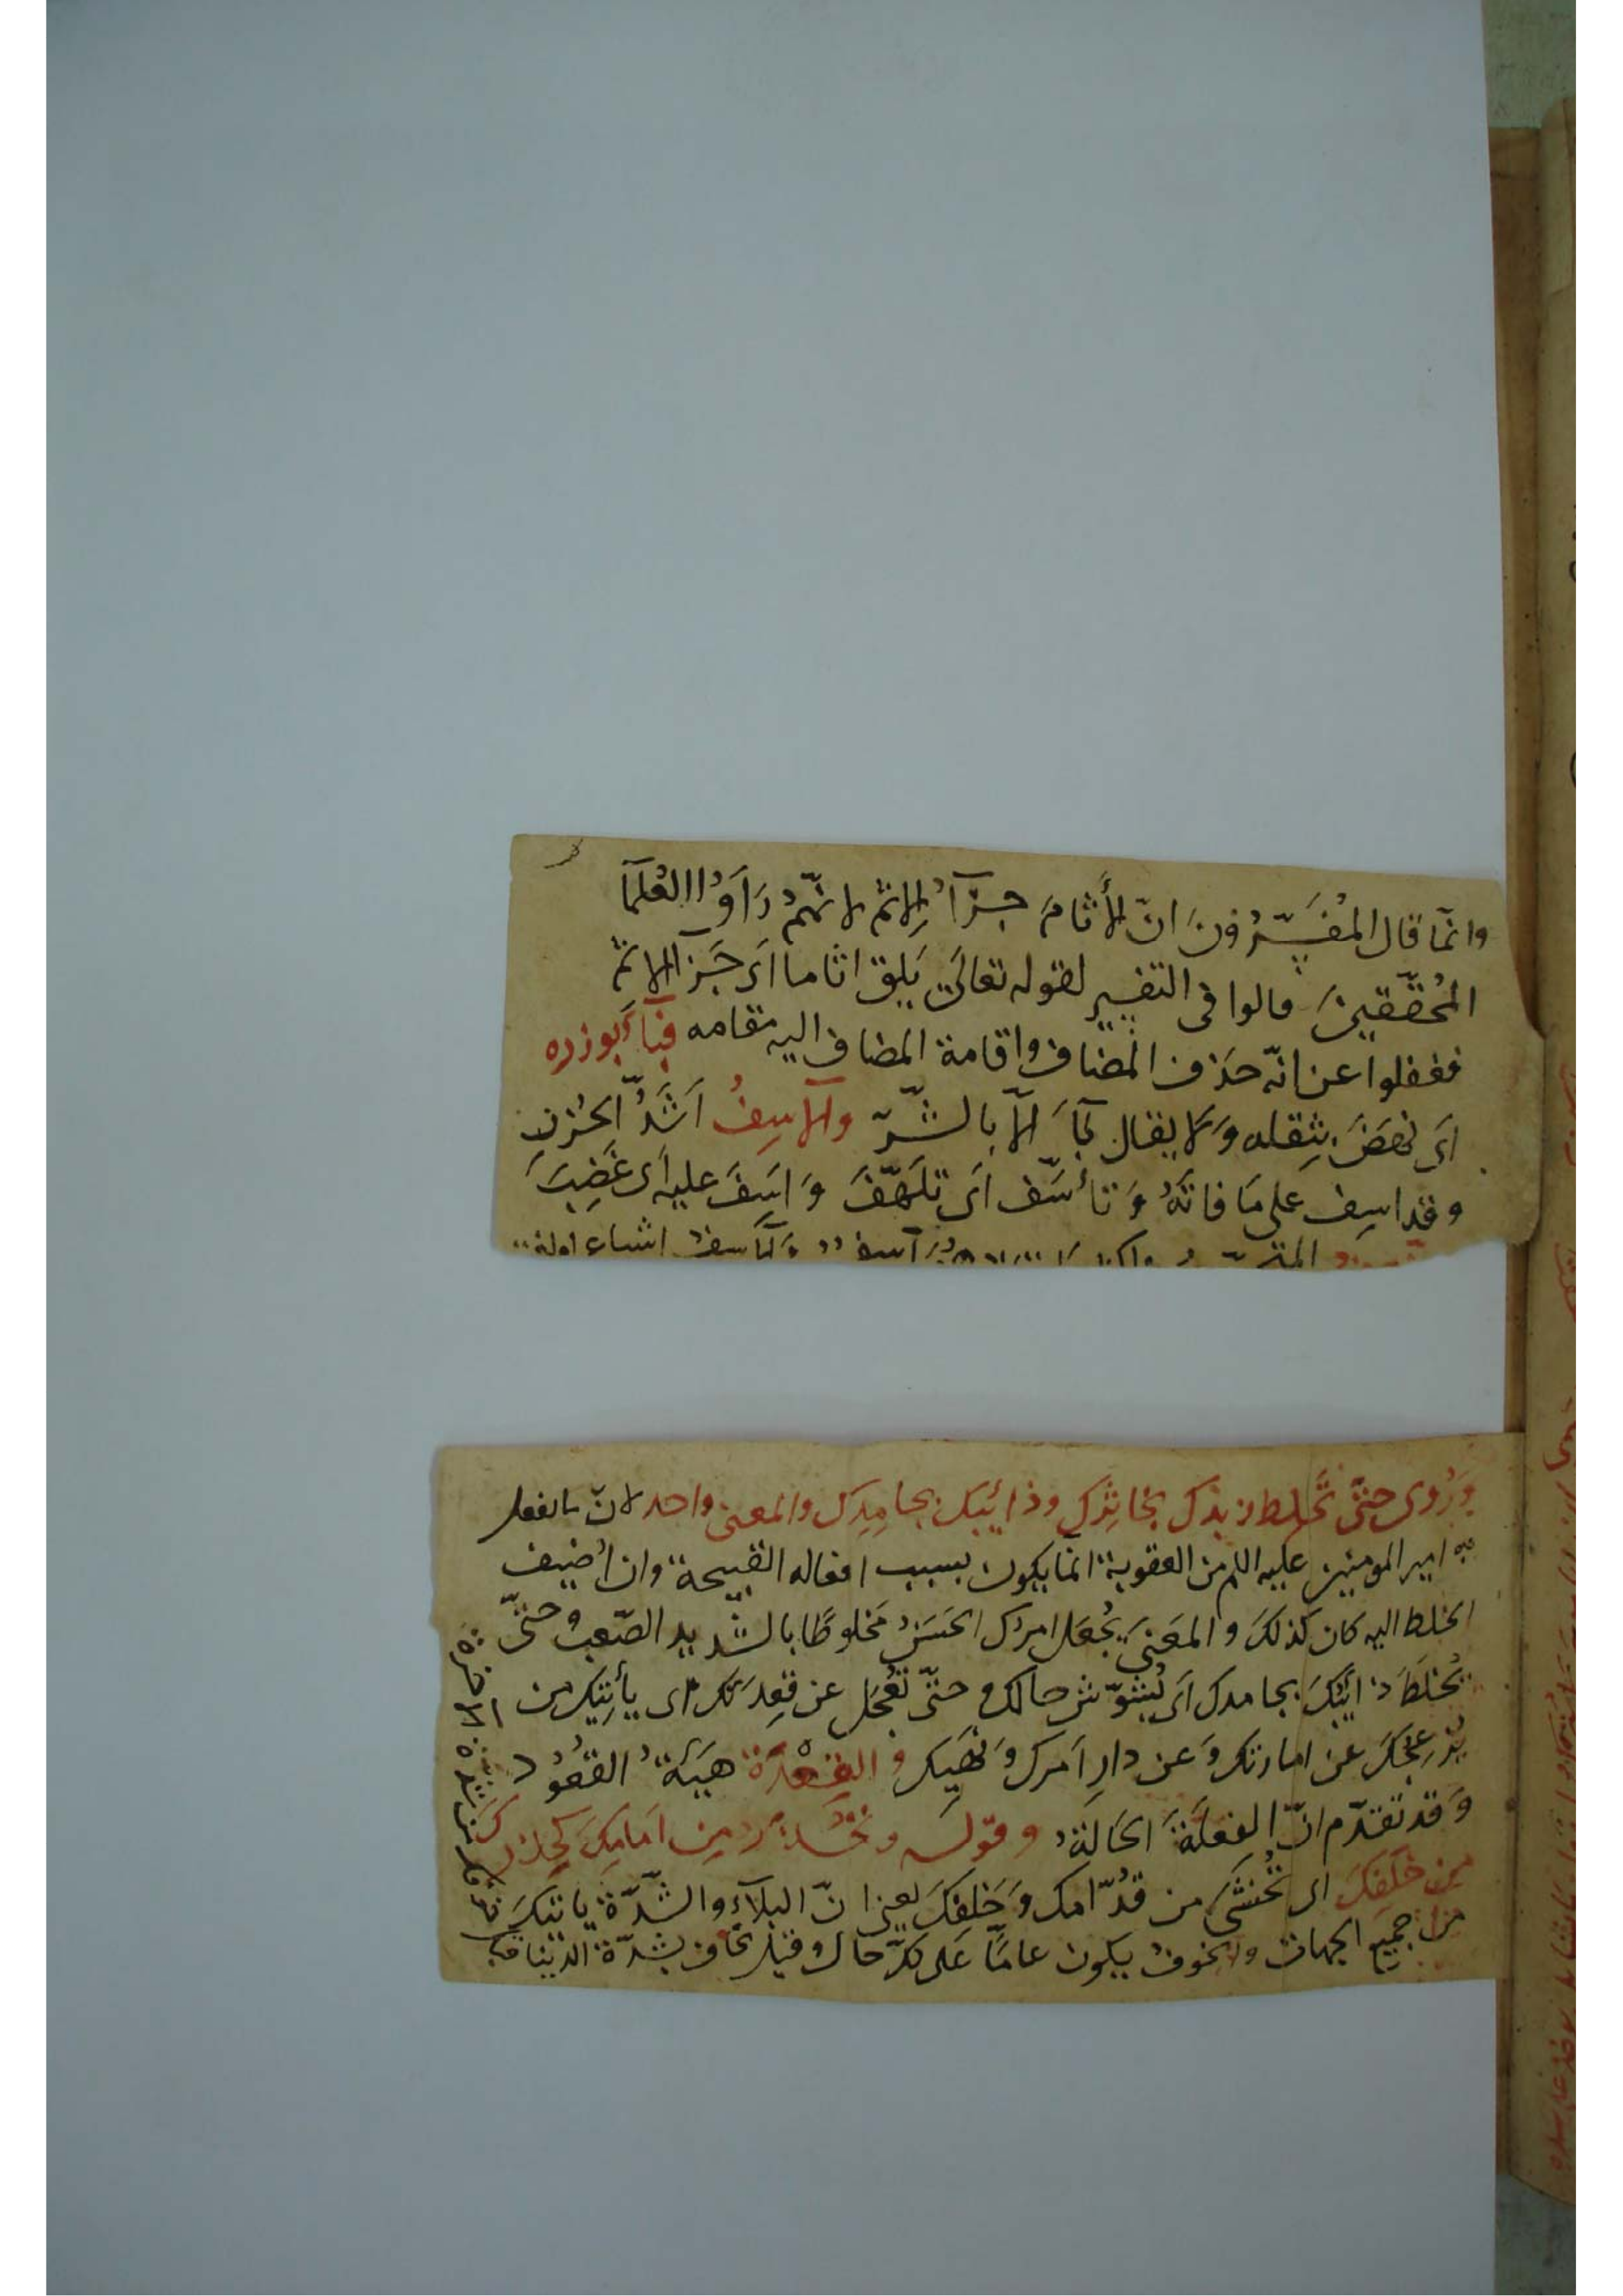 وانما قال المُفَسِّرُونَ انّ الأَثامَ جزَآءُ الاثم لانّهم رَأَوُا العُلَمآ
المُحَقّقينَ قالوا فى التفسير لقوله تعالىَ يَلق اثاما اَى جَزآ الاثم
فغفلوا عن انّه حَذف المضاف واقامة المضاف اليه مقامه فبآء بوزره
اَى نهَضَ بثِقله وَلا يقال بَآءَ الّا بالشّرّ والآسِفُ اَشَدُّ الحُزنِ
وقد اسِف على مَا فاتَهُ وَتأسّف اَى تلَهّفَ وَاَسِفَ عليه اَى غَضِبَ
وَرُوى حتىّ تُخلط زبدك بخاثِرك وذائبك بجامِدِك والمعنى واحد لانّ ما لفعل
به امير المومنين عليه السلم من العقوبة انّما يكون بسبب افعاله القبيحة وان اُضيف
الخلط اليه كان كذلكَ والمعَنىَ يُجعَل امرك الحسَنُ مَخلوطًا بالشّديد الصّعب وحتىّ
يُخلَطَ ذائبكَ بجامدك اَى يُشوّش حالك وحتىّ تُعجَل عن قِعدَتك اى يأتيك من
يُزعِجكَ عن امارتك وَعن دارِ اَمرك وَنَهيك والقِعْدَة هَيَئَةُ القعُود
وَقد تقدّم انّ الفِعلَةَ الحَالَةُ وقوله وتَحذَر مِن اَمامِكَ كحذرك
مِن خَلفِكَ اى تُخشَى من قُدّامك وَخَلفكَ يعنى انّ البلآء والشّدّة ياتيكَ
من جميع الجهات والخوف يكون عامًّا عَلى كلّ حال وقيل تخاف بشدّة الدّنيا